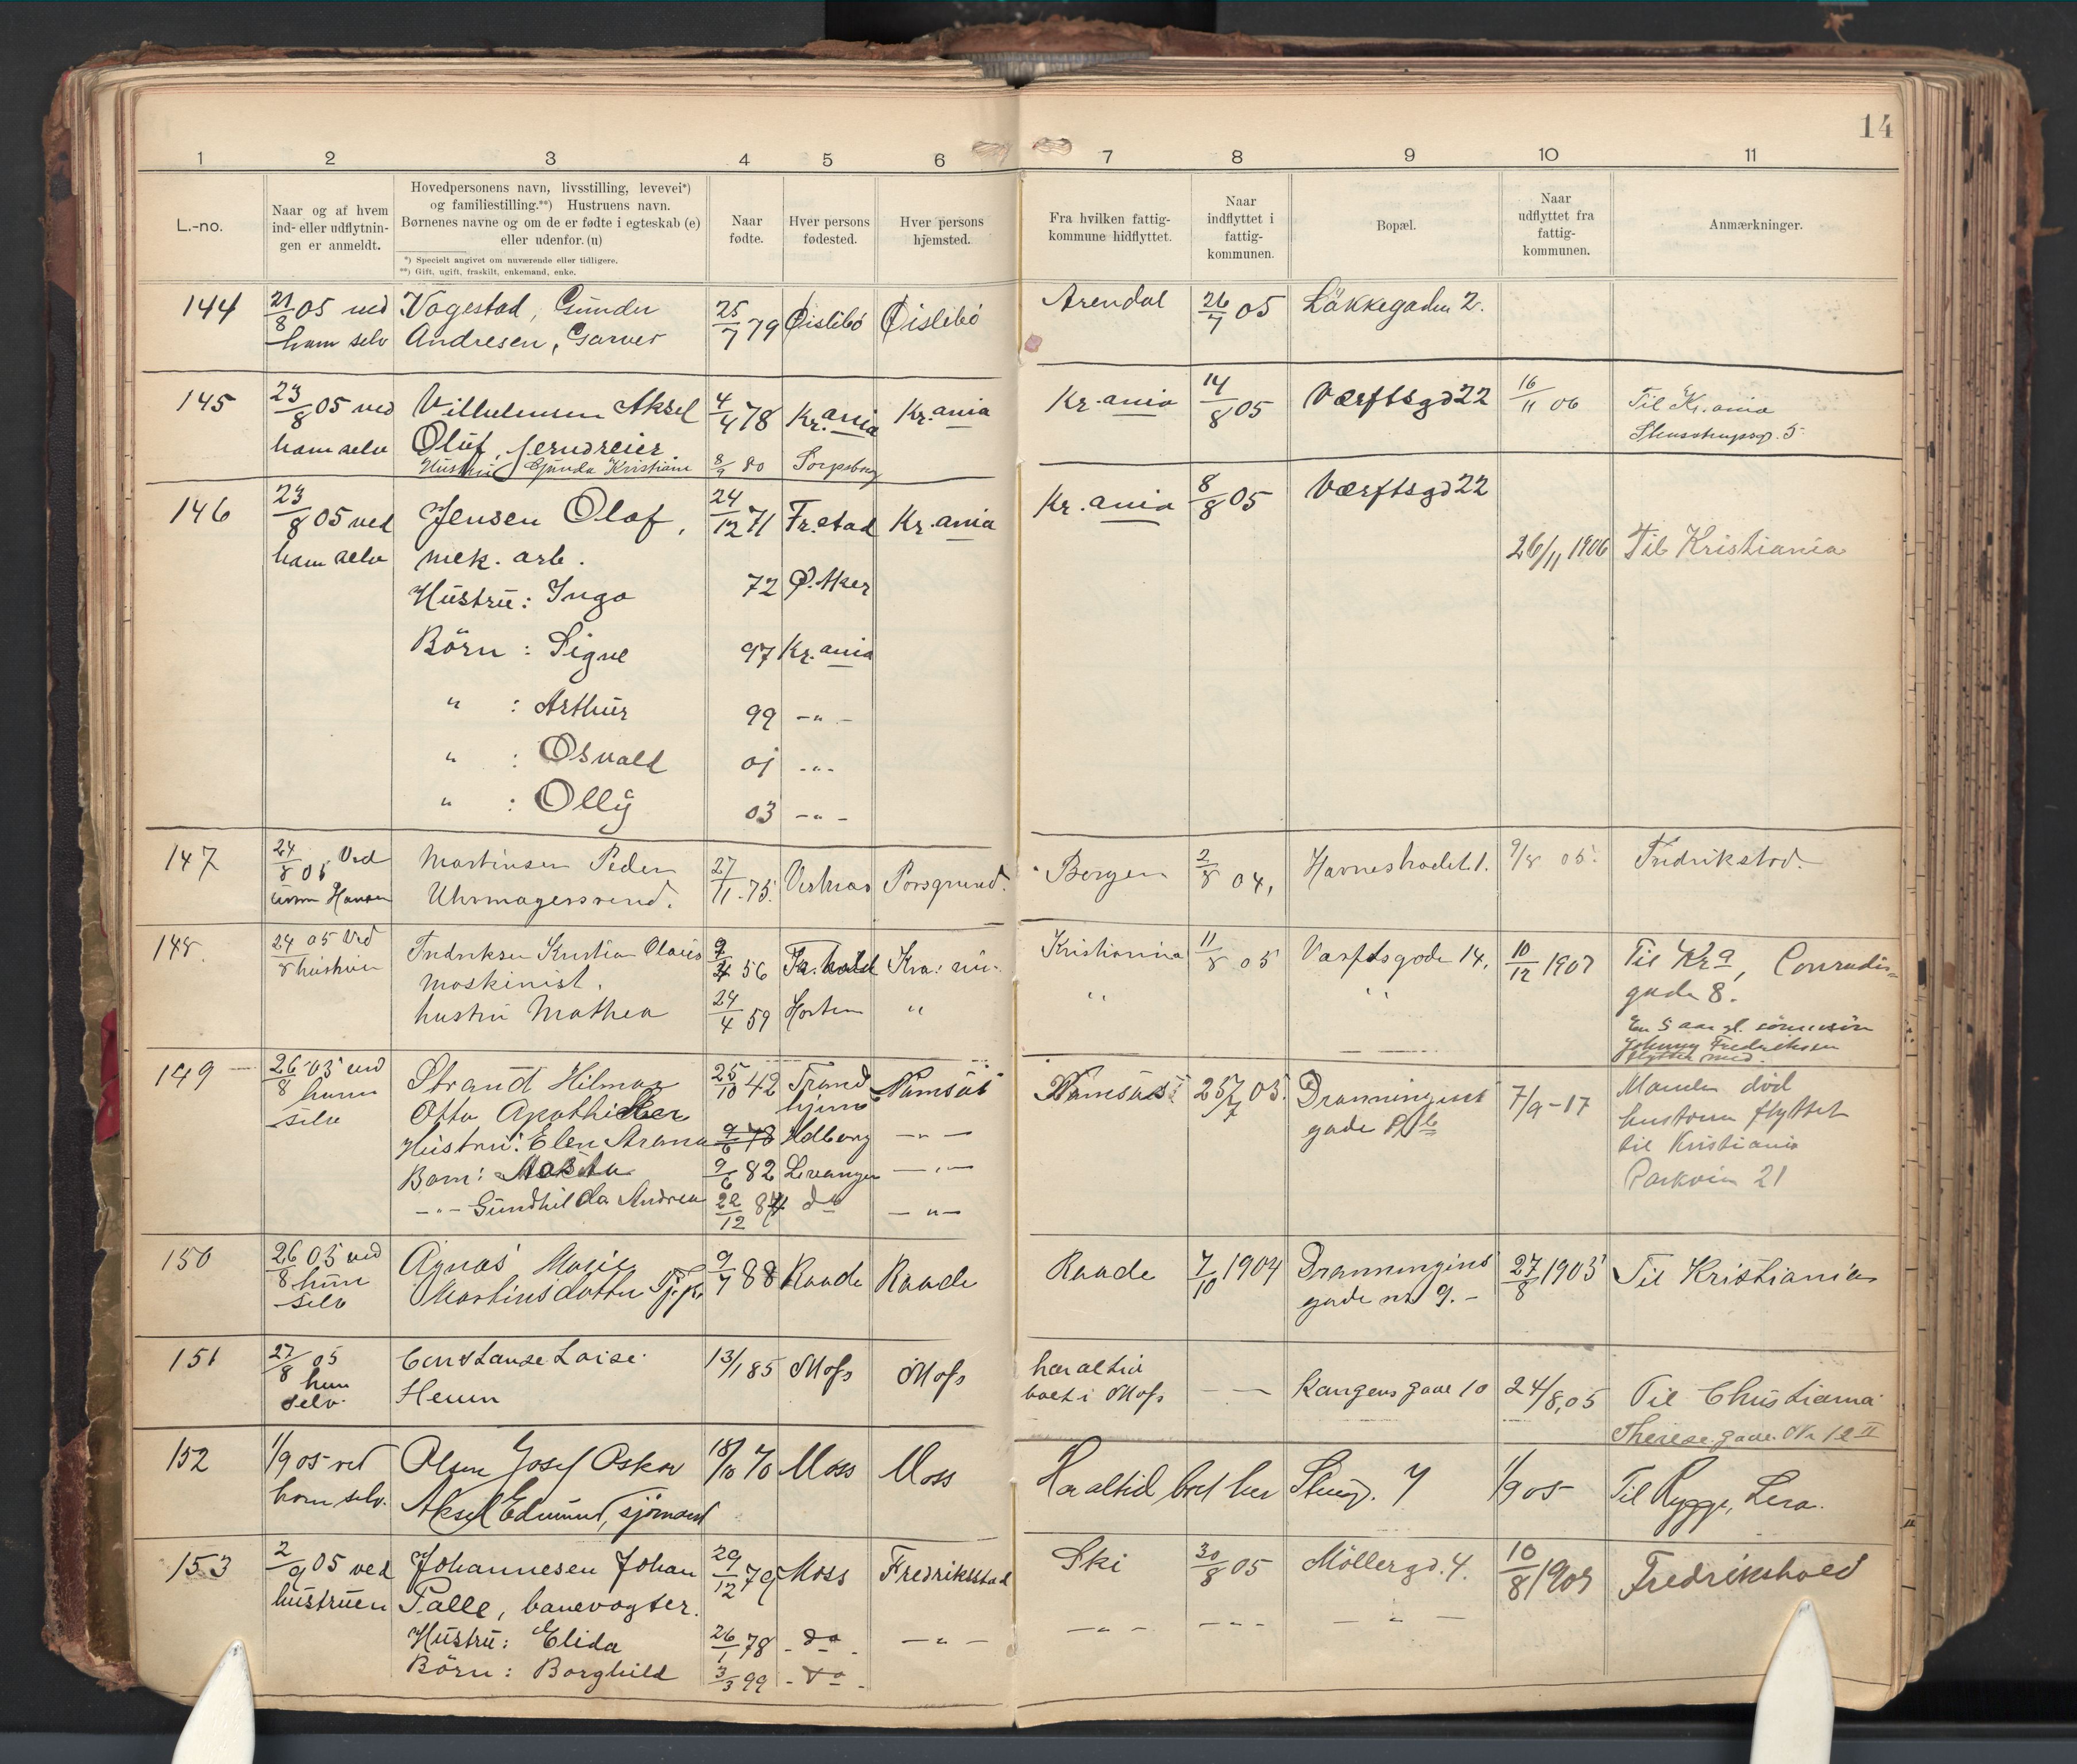 14
1 2 3 4 5 6 7 8 9 10 11
L.-no.
Naar og af hvem
ind- eller udflytnin-
gen er anmeldt.
Hovedpersonens navn, livsstilling, levevei*)
og familiestilling.**) Hustruens navn.
Børnenes navne og om de er fødte i egteskab (e)
eller udenfor. (u)
*) Specielt angivet om nuværende eller tidligere.
**) Gift, ugift, fraskilt, enkemand, enke.
Naar
fødte.
Hver persons
fødested.
Hver persons
hjemsted.
Fra hvilken fattig-
kommune hidflyttet.
Naar
indflyttet i
fattig-
kommunen.
Bopæl.
Naar
udflyttet fra
fattig-
kommunen.
Anmærkninger.
144 21/8 05 ved Vagestad, Gunder 25/7 79 Øislebö Øislebö Arendal 26/7 05 Løkkegaden 2.
ham selv Andresen, Garver
145 23/8 05 ved Vilhelmsen Aksel 4/4 78 Kr.ania Kr.ania Kr.ania 14/8 05 Værftsgd 22 16/11 06 Til Kr.ania
ham selv Oluf, jerndreier 5
Hustru Gunda Kristiane 8/9 80 Sarpsborg
146 23/8 05 ved Jensen Olaf, 24/12 71 Fr.stad Kr.ania Kr.ania 8/8 05 Værftsgd 22
ham selv mek. arb. 26/11 1906 Til Kristiania
Hustru: Inga 72 Ø. Aker
Börn: Signe 97 Kr.ania
" : Arthur 99 -"-
" : Osvald 01 -"-
" : Olly 03 -"-
147 24/8 05 Ved Martinsen Peder 27/11 75. Porsgrund. Bergen 2/8 04, Havnehodet 1. 9/8 05. Fredrikstad.
Hansen Uhrmagersvend.
148 24/8 05 Ved Fredriksen Kristian Olaus 56 Fr.hald Kra: nu- Kristiania 11/8 05 Varftsgade 14. 10/12 1907 Til Kra, Conradis-
hustruen maskinist. gade 8.
hustru Mathea 24/4 59 Horten " " "
En 5 aar gl. sönnesön
Johnny Fredriksen
flyttet med.
149 26/8 05 ved Strand Hilmar 25/10 42 Trond Namsos Namsos 25/7 05 Dronningens 7/9-17 Manden död
ham Otto Apotheker hjem gade hustruen flyttet
selv Hustru: Elen 78 -"- til Kristiania
Barn: 9/6 82 Levanger -"- Parkvien 21
-"- Gundhilda Andrea 22/12 84 do -"-
150 26/8 05 ved Agnas Marie 9/7 88 Raade Raade Raade 7/10 1904 Dronningens 27/8 1905 Til Kristiania
hun Martinsdatter Tj.p. gade nr 9.-
selv
151 27/8 05 Constanse Loise 13/1 85 Moss Moss har altid
hun Henn boet i Moss - - Kongens gade 10 24/8, 05 Til Christiania
selv. Therese gade No 12 II
152 1/9 05 ved Olsen Josef Oskar 18/10 70 Moss Moss Har altid boet her 7 1/9 05 Til Rygge,
ham selv. Aksel Edmund, sjömand
153 2/9 05 ved Johannesen Johan 29/12 79 Moss Fredriksstad Ski 30/8 05 Möllergd. 4. 10/8 1909 Fredrikshald
hustruen Palle, banevogter. -"- -"- -"-
Hustru: Elida 26/1 78 - do - -"-
Börn: Borghild 3/3 99 - do -